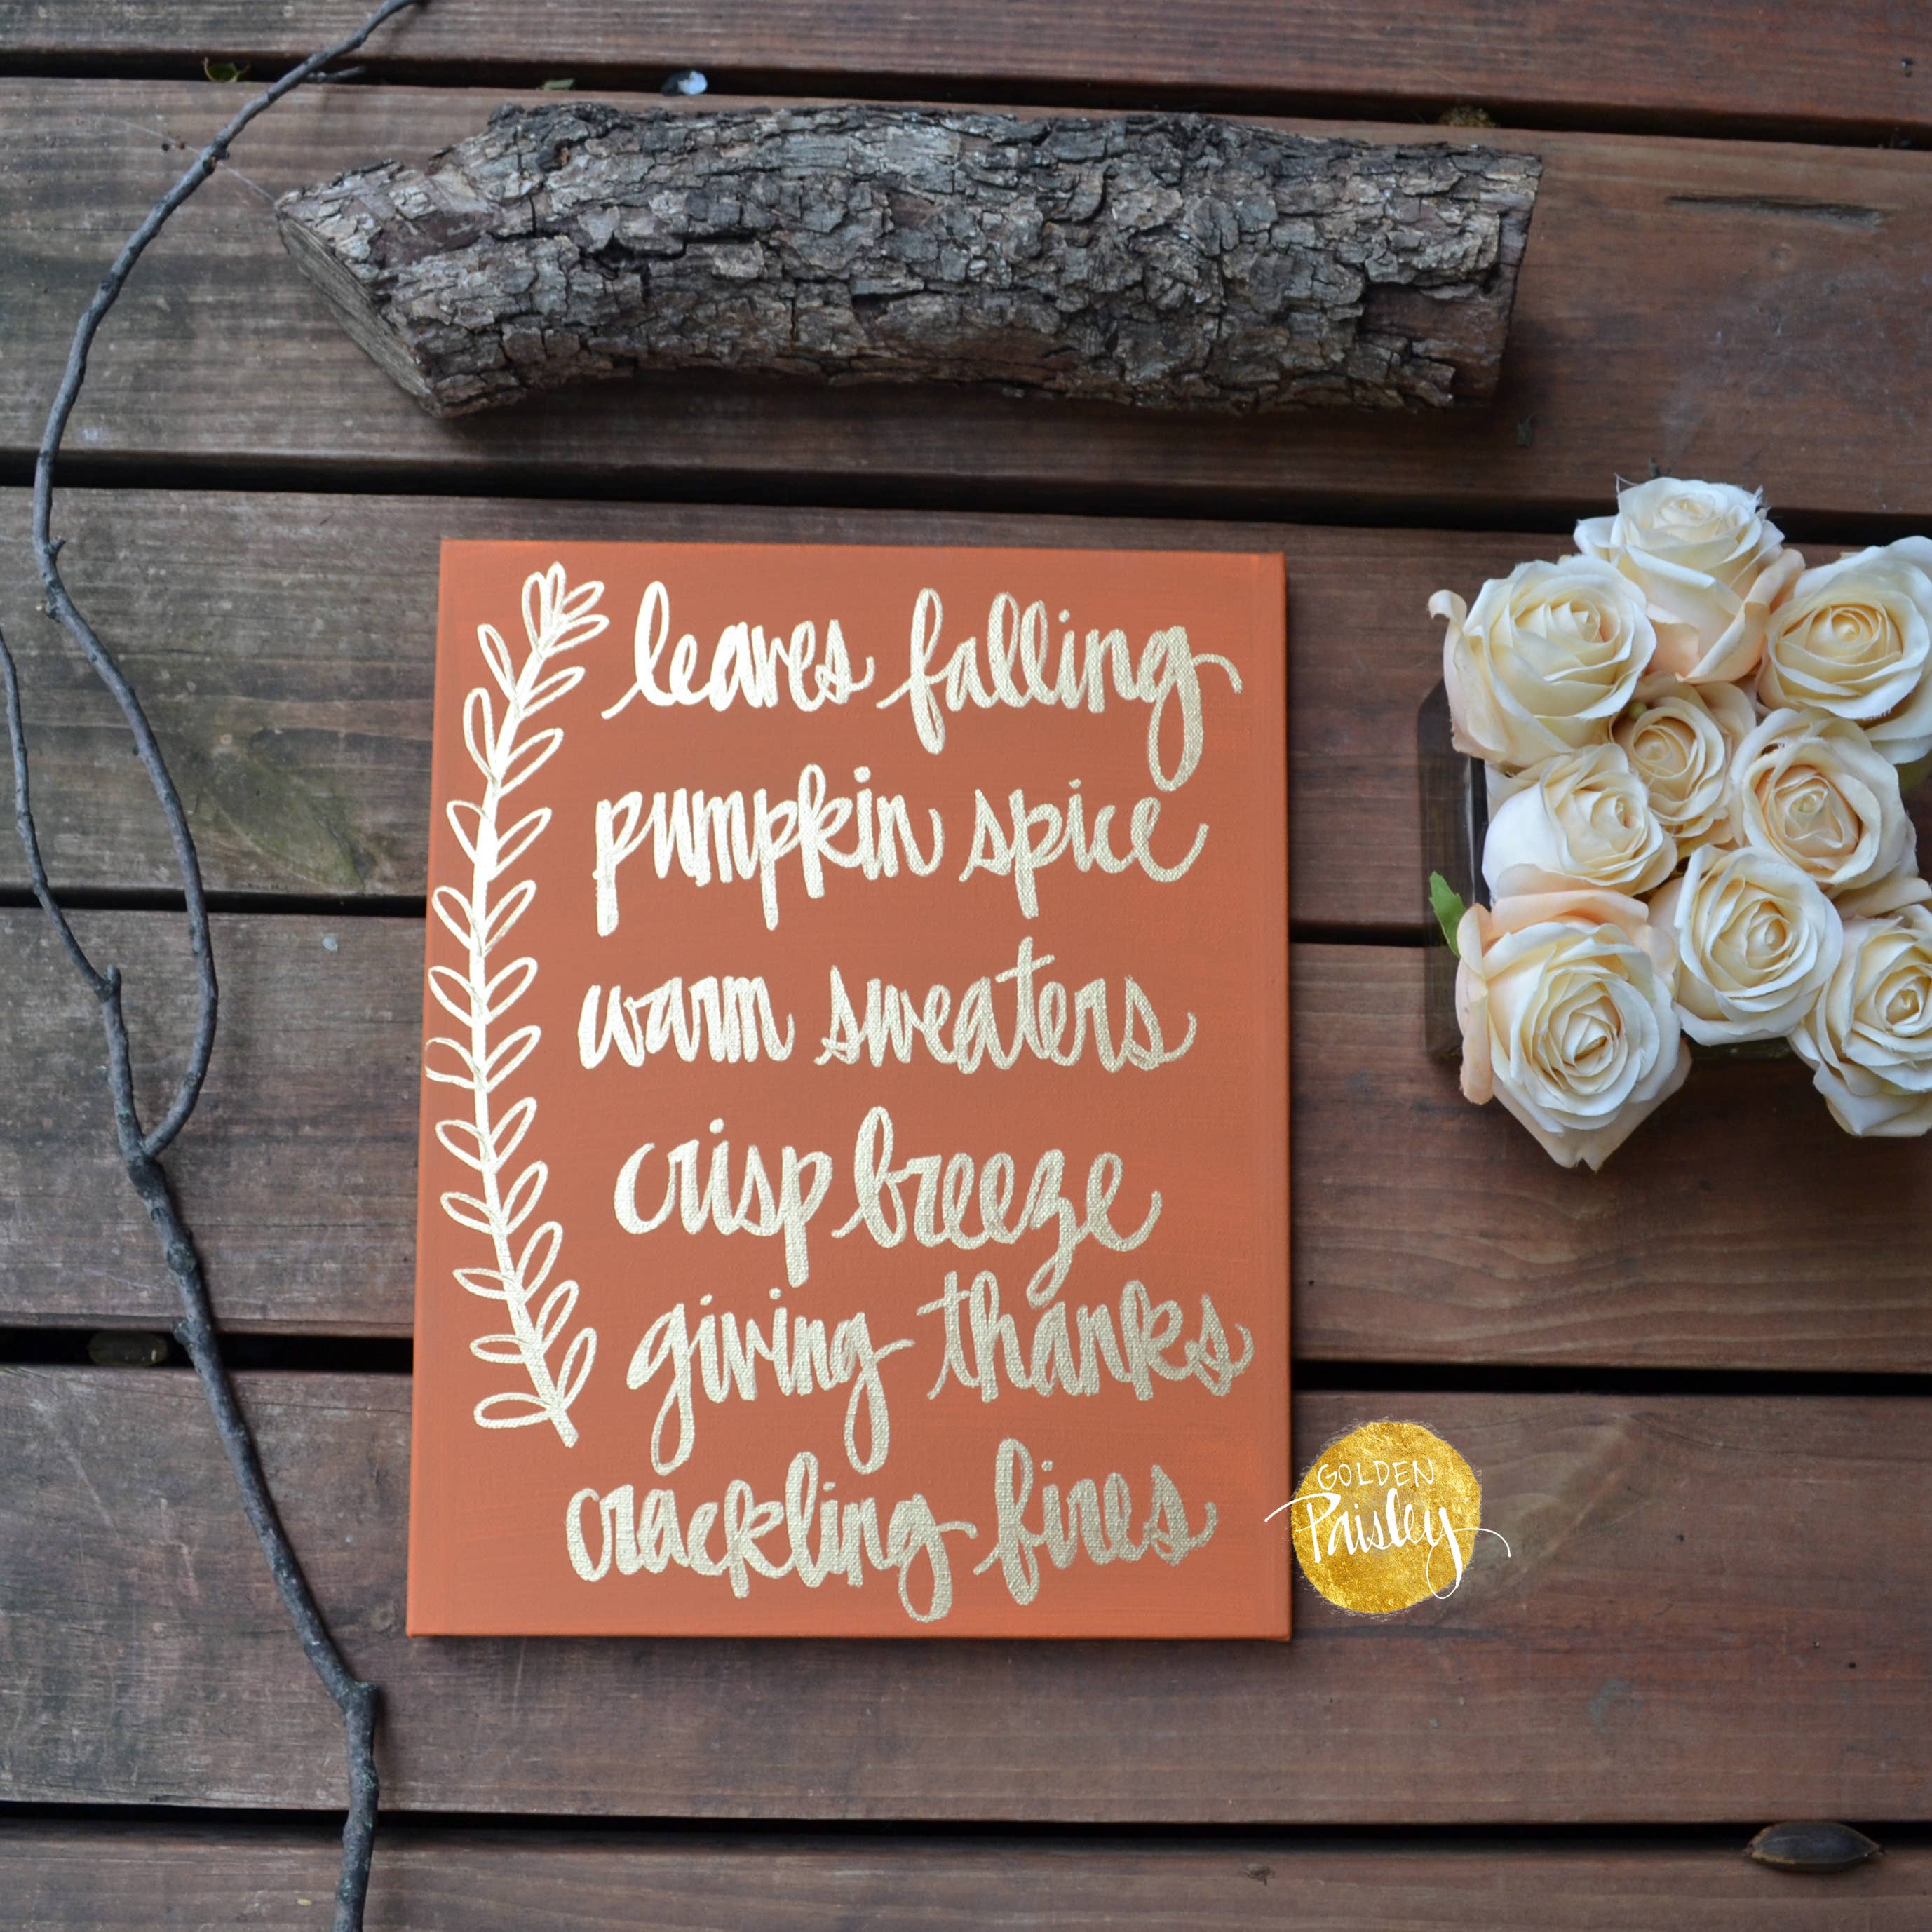 leaves falling
pumpkin spice
warm sweaters
crisp breeze
giving thanks
crackling fires
GOLDEN
Paisley